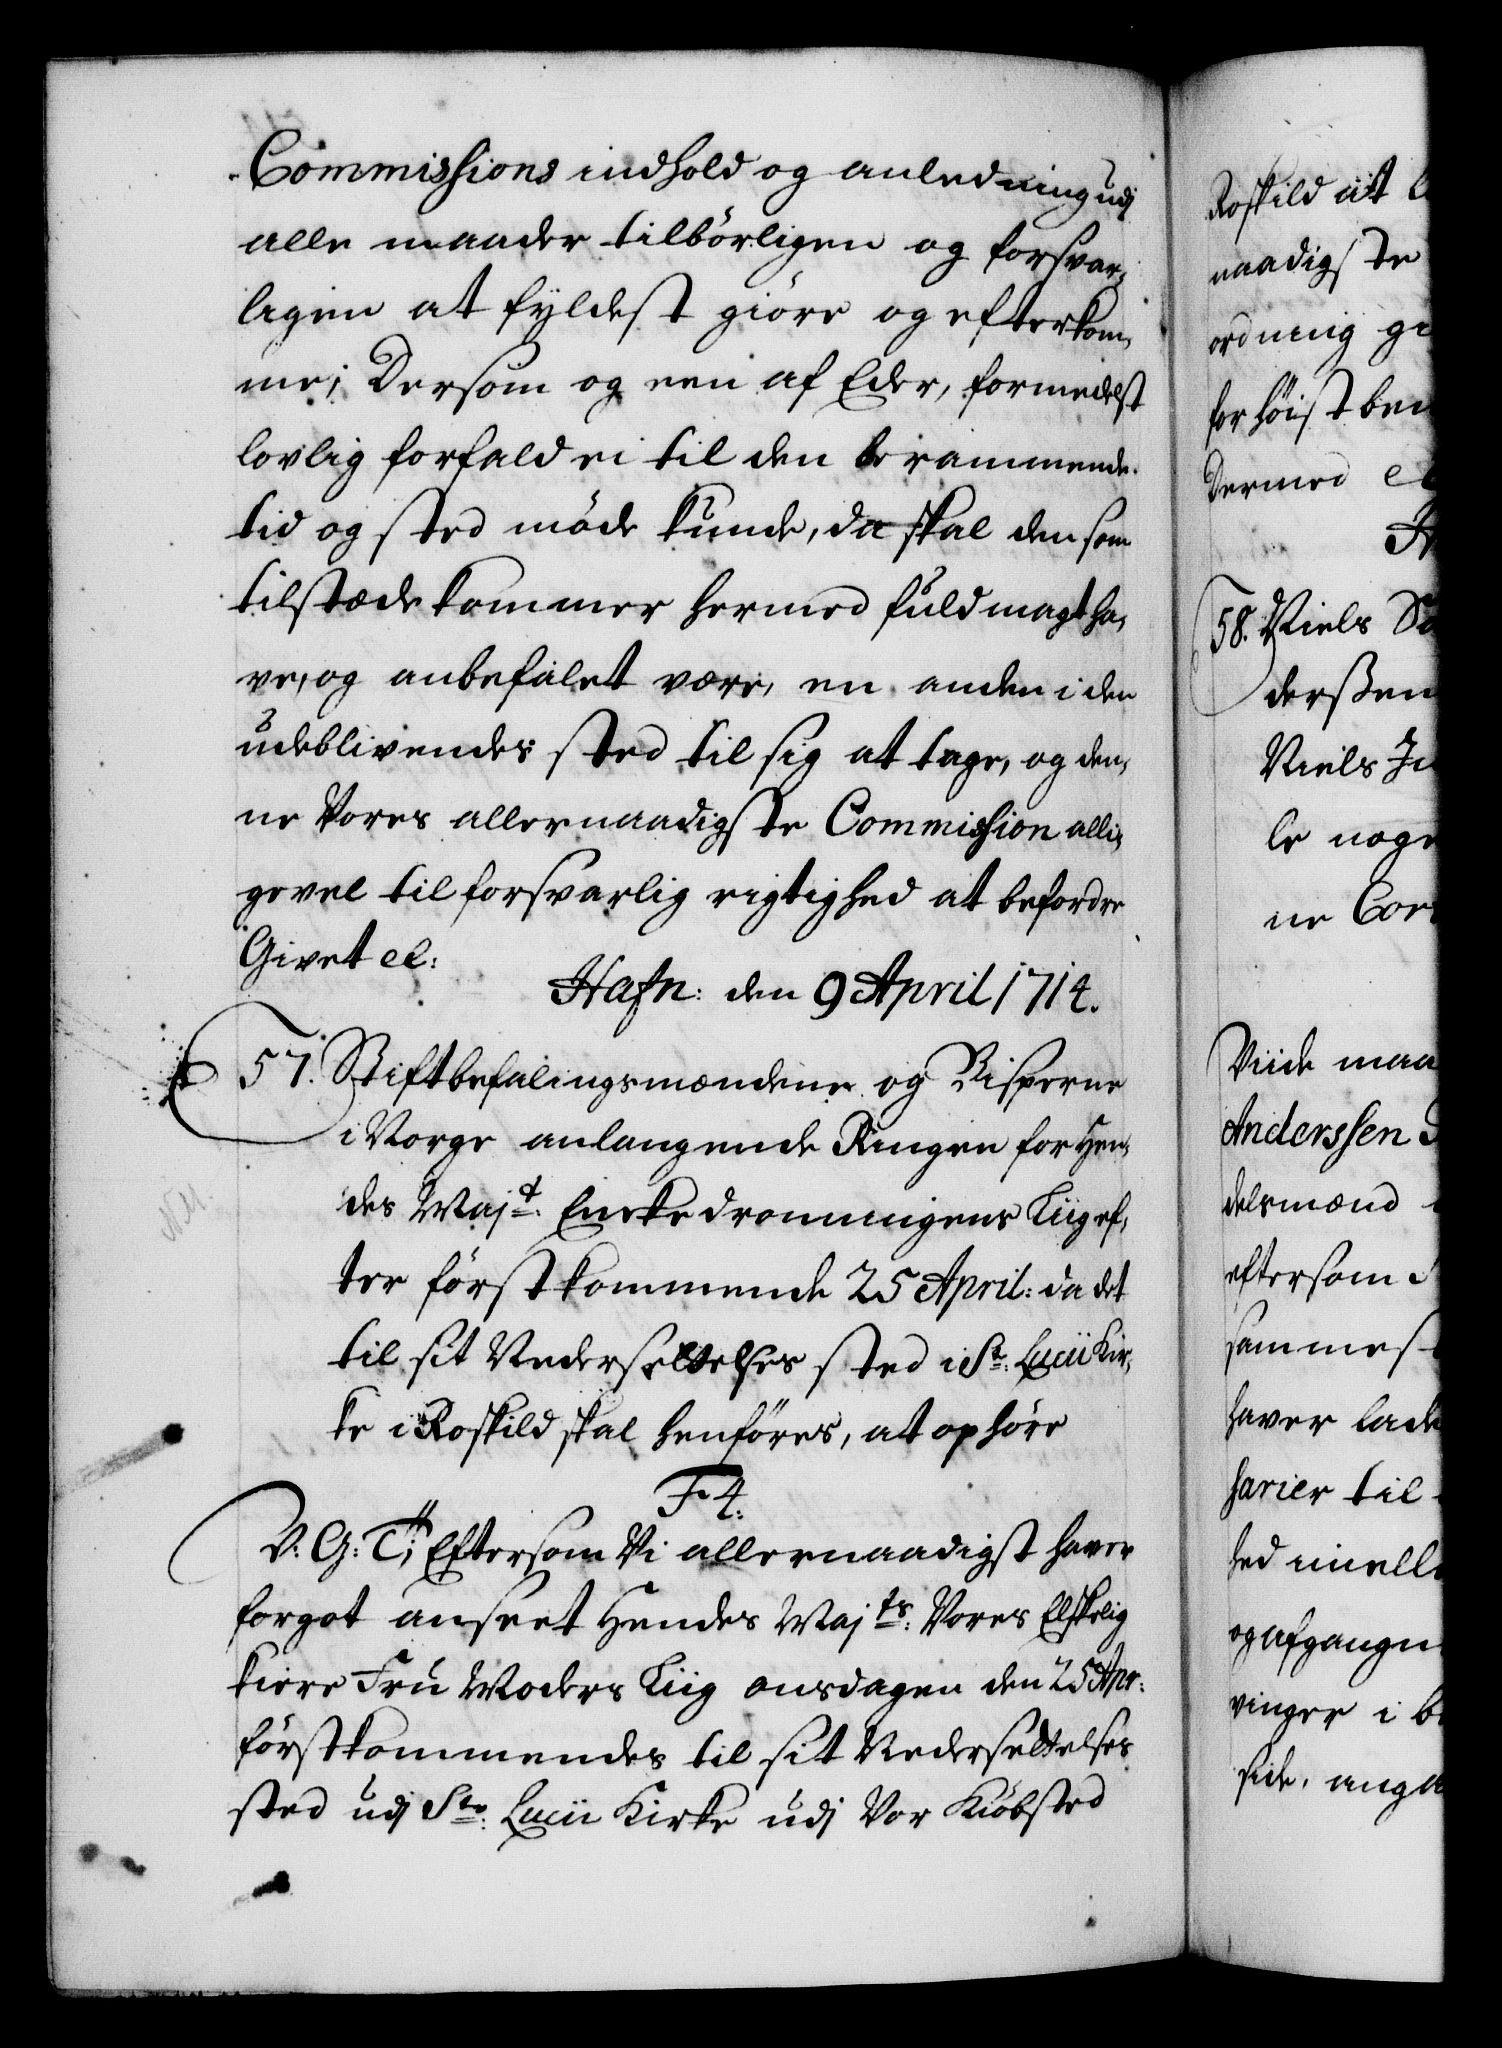 Commissions indhold og anledning udj
alle maader tilbörligen og forsvar,
ligen at fyldest giöre og efterkom,
me; Dersom og een af Eder, formedelst
lovlig forfald ei til den berammende
tid og sted möde kunde, da skal den som
tilstæde kommer hermed fuldmagt ha,
ve, og anbefalet være, en anden i den
udeblivendes sted til sig at tage, og den,
ne Vores allernaadigste Commission alli,
gevel til forsvarlig rigtighed at befordre
Givet etc:
Hafn: den 9 April 1714.
57. Stiftbefalingsmændene og Bisperne
i Norge anlangende Ringen for Hen,
des Majt: Enckedronningens Liig ef,
ter förstkommende 25 April: da det
til sit Nedersettelses sted i St: Lucii Kir,
ke i Roskild skal henföres, at ophöre
F 4.
V: G: T; Eftersom Vi allernaadigst haver
forgot anseet Hendes Majts: Vores Elskelig
kiere Fru Moders Liig onsdagen den 25 Apr:
förstkommendes til sit Nedersettelses
sted udj Ste: Lucii Kirke udj Vor Kiöbsted
Roskild at
naadigste
ordning
for höist
Dermed
58. Niels
derßen
Niels
le
ne
Viide maa
Anderssen
delsmænd
eftersom
sammest
haver lade
harier til
hed imell
og afgangn
vinger i
side, anga